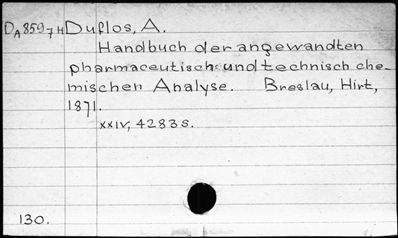 DA8597H Duflos, A.
Handbuch der angewandten
pharmaceutisch und technisch che-
mischen Analyse. Breslau, Hirt,
1871.
XXIV, 4283 S.
130.